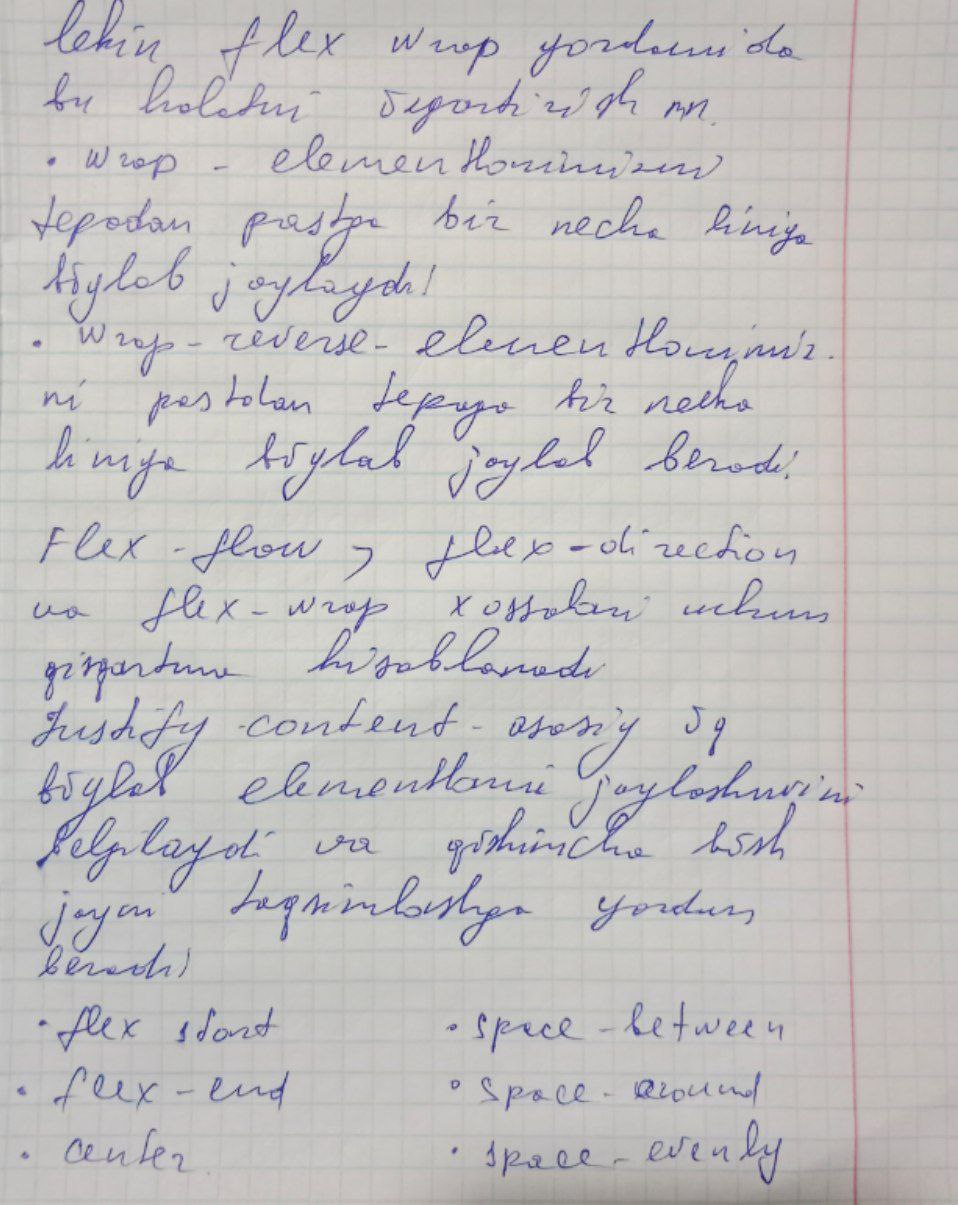 lekin flex wrap yordamida
bu holatni õzgartirish mn.
• wrap - elementlarimizni
tepadan pastga bir necha liniya
bõylab joylaydi!
• wrap-reverse- elementlarimiz-
ni pastdan tepaga bir necha
liniya bõylab joylab beradi.
Flex-flow, flex-direction
va flex-wrap xossalari uchun
qisqartma hisoblanadi
Justify-content- asosiy õq
bõylab elementlarni joylashuvini
belgilaydi va qõshimcha bõsh
joyni taqsimlashga yordam
beradi
• flex start • space-between
• flex-end • space-around
• center • space-evenly